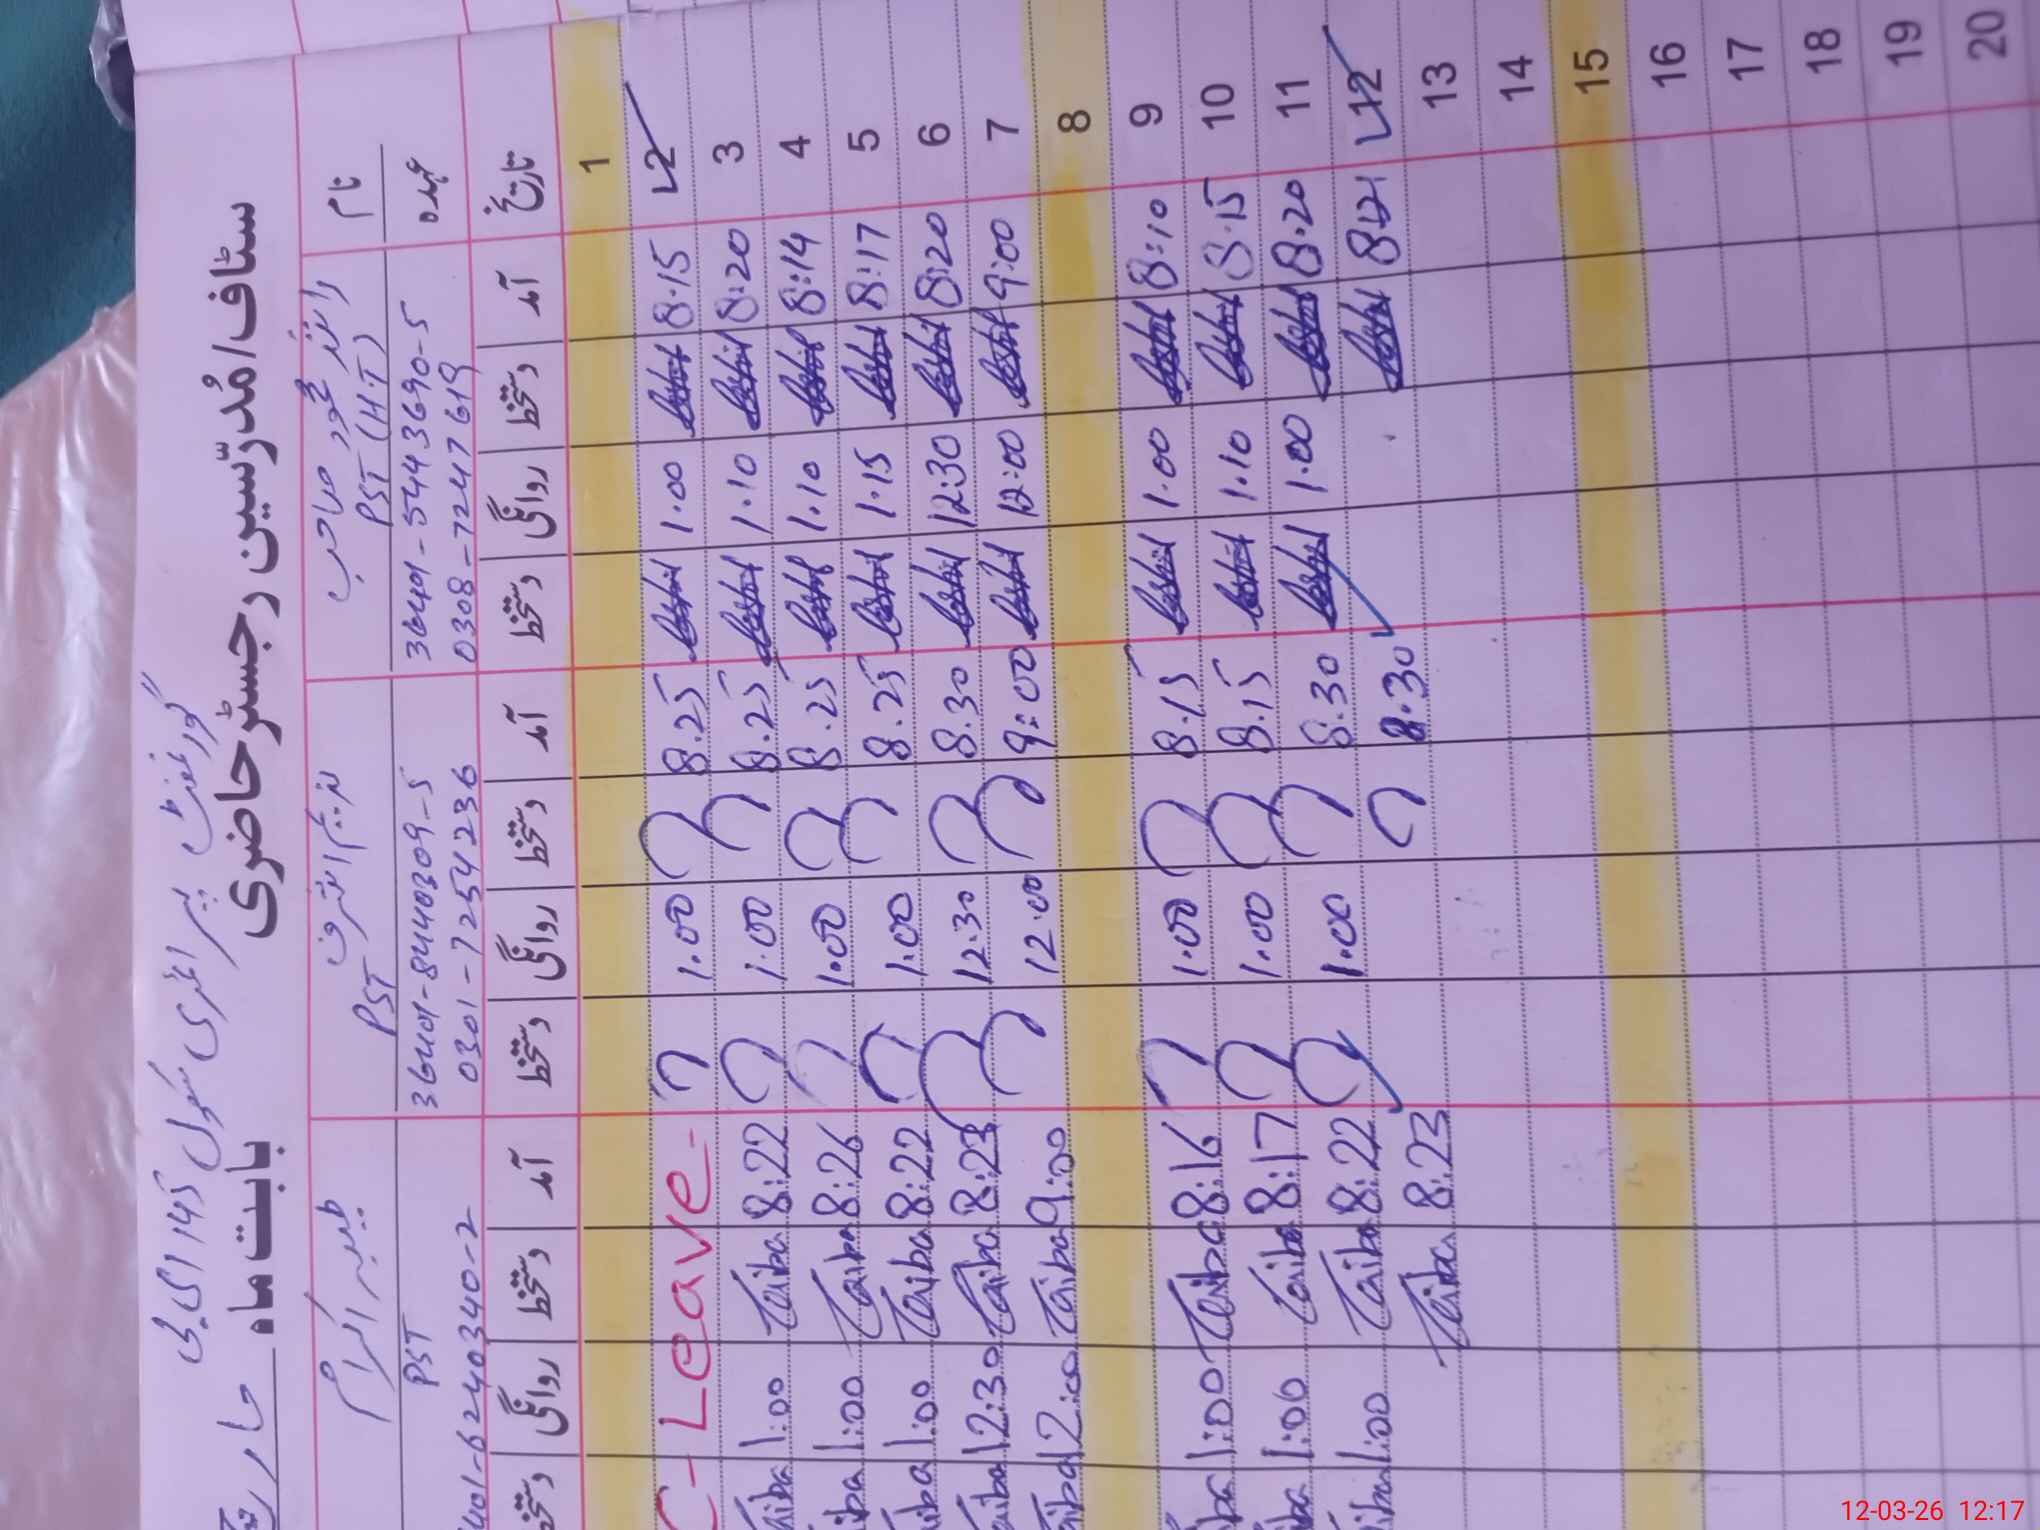 گورنمنٹ پرائمری سکول 145 ای بی
سٹاف/مُدرّسین رجسٹر حاضری بابت ماہ مارچ
نام
عہدہ
تاریخ
راشد محمود صاحب
PST (H.T)
36401-5443690-5
0308-7247619
آمد دستخط روانگی دستخط
PST
36401-8440309-5
0301-7254236
آمد دستخط روانگی دستخط
طیبہ اکرام
PST
401-6240340-2
آمد دستخط روانگی دستخط
1
2 8.15 1.00 8.25 1.00 C-Leave-
3 8:20 1.10 8.25 1.00 8:22 Taiba 1:00 Taiba
4 8:14 1.10 8.25 1.00 8:26 Taiba 1:00 iba
5 8:17 1.15 8.25 1.00 8:22 Taiba 1:00 aiba
6 8:20 12:30 8.30 12.30 8:23 Taiba 12:30 aiba
7 9:00 12:00 9:00 12.00 9:00 Taiba 12:00 aiba
8
9 8:10 1.00 8.15 1.00 8:16 Taiba 1:00 iba
10 8.15 1.10 8.15 1.00 8:17 Taiba 1:00 ba
11 8.20 1.00 8.30 1.00 8:22 Taiba 1:00 iba
12 8:21 8.30 8:23 Taiba
13
14
15
16
17
18
19
20
12-03-26 12:17